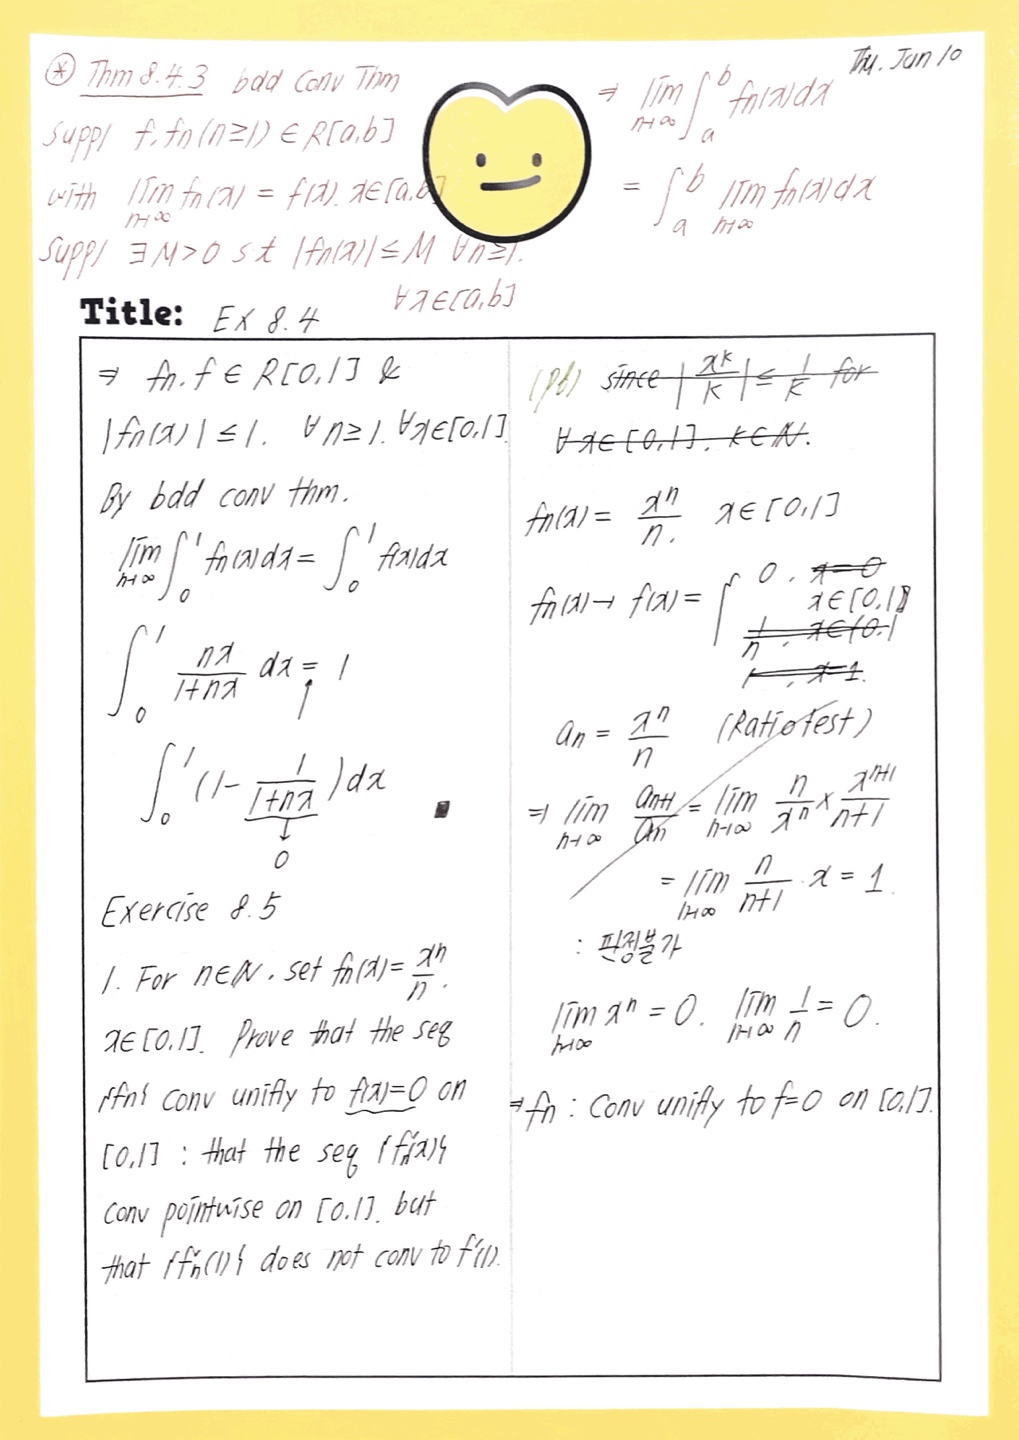 Thu. Jun 10
⊛ Thm 8.4.3 bdd Conv Thm
Supp/ f, fn (n≥1) ∈ R[a,b]
with lim n→∞ fn(x) = f(x). x∈[a,b]
Supp/ ∃M>0 s t |fn(x)| ≤ M ∀n≥1.
∀x∈[a,b]
⇒ lim n→∞ ∫_a^b fn(x)dx
= ∫_a^b lim n→∞ fn(x)dx
Title: EX 8.4
⇒ fn, f ∈ R[0,1] &
|fn(x)| ≤ 1. ∀n≥1. ∀x∈[0,1]
By bdd conv thm.
lim n→∞ ∫_0^1 fn(x)dx = ∫_0^1 f(x)dx
∫_0^1 nx/(1+nx) dx = 1
↑
∫_0^1 (1- 1/(1+nx)) dx ■
↓
0
Exercise 8.5
1. For n∈N, set fn(x) = x^n/n.
x∈[0,1]. Prove that the seq
{fn} conv unifly to f(x)=0 on
[0,1] : that the seq {f'n(x)}
conv pointwise on [0,1]. but
that {f'n(1)} does not conv to f'(1).
(pf) since |x^k/k| ≤ 1/k for
∀x∈[0,1]. k∈N.
fn(x) = x^n/n. x∈[0,1]
fn(x)→ f(x) = { 0 . x=0
x∈[0,1]
1/n . x∈(0,1
1 . x=1.
an = x^n/n (Ratio test)
⇒ lim n→∞ an+1/an = lim n→∞ n/x^n × x^(n+1)/(n+1)
= lim n→∞ n/(n+1) · x = 1.
: 판정불가
lim n→∞ x^n = 0. lim n→∞ 1/n = 0.
⇒ fn : Conv unifly to f=0 on [0,1].